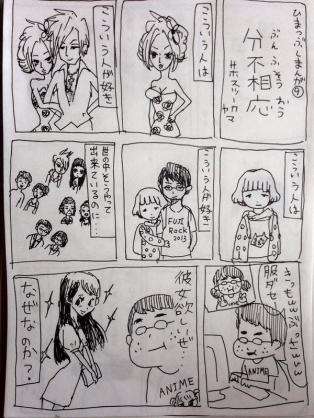 ひまつぶしまんが④
分不相応
ぶんふそうおう
こういう人は
こういう人が好き
こういう人は
こういう人が好き
FUJI
Rock
2013
世の中そうやって
出来ているのに…
きっもwwwぶっさwww
服ダセー
ANIME
彼女欲しいぜ…
ANIME
なぜなのか?